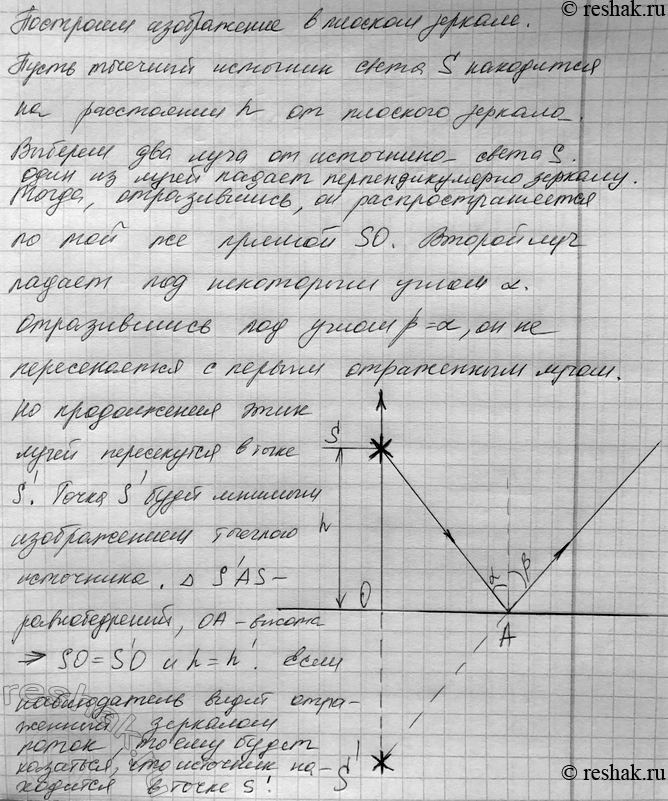 © reshak.ru
Построим изображение в плоском зеркале.
Пусть точечный источник света S находится
на расстоянии h от плоского зеркала.
Выберем два луча от источника света S.
один из лучей падает перпендикулярно зеркалу.
Тогда, отразившись, он распространяется
по той же прямой SO. Второй луч
падает под некоторым углом α.
отразившись под углом β=α, он не
пересекается с первым отраженным лучом.
но продолжения этих
лучей пересекутся в точке
S'. Точка S' будет мнимым
изображением точечного
источника. Δ S'AS-
равнобедренный, OA-высота
⇒ SO=S'O и h=h'. если
наблюдатель видит отра-
женный зеркалом
поток, то ему будет
казаться, что источник на-
ходится в точке S'.
S
h
O
α
β
A
S'
reshak.ru
© reshak.ru